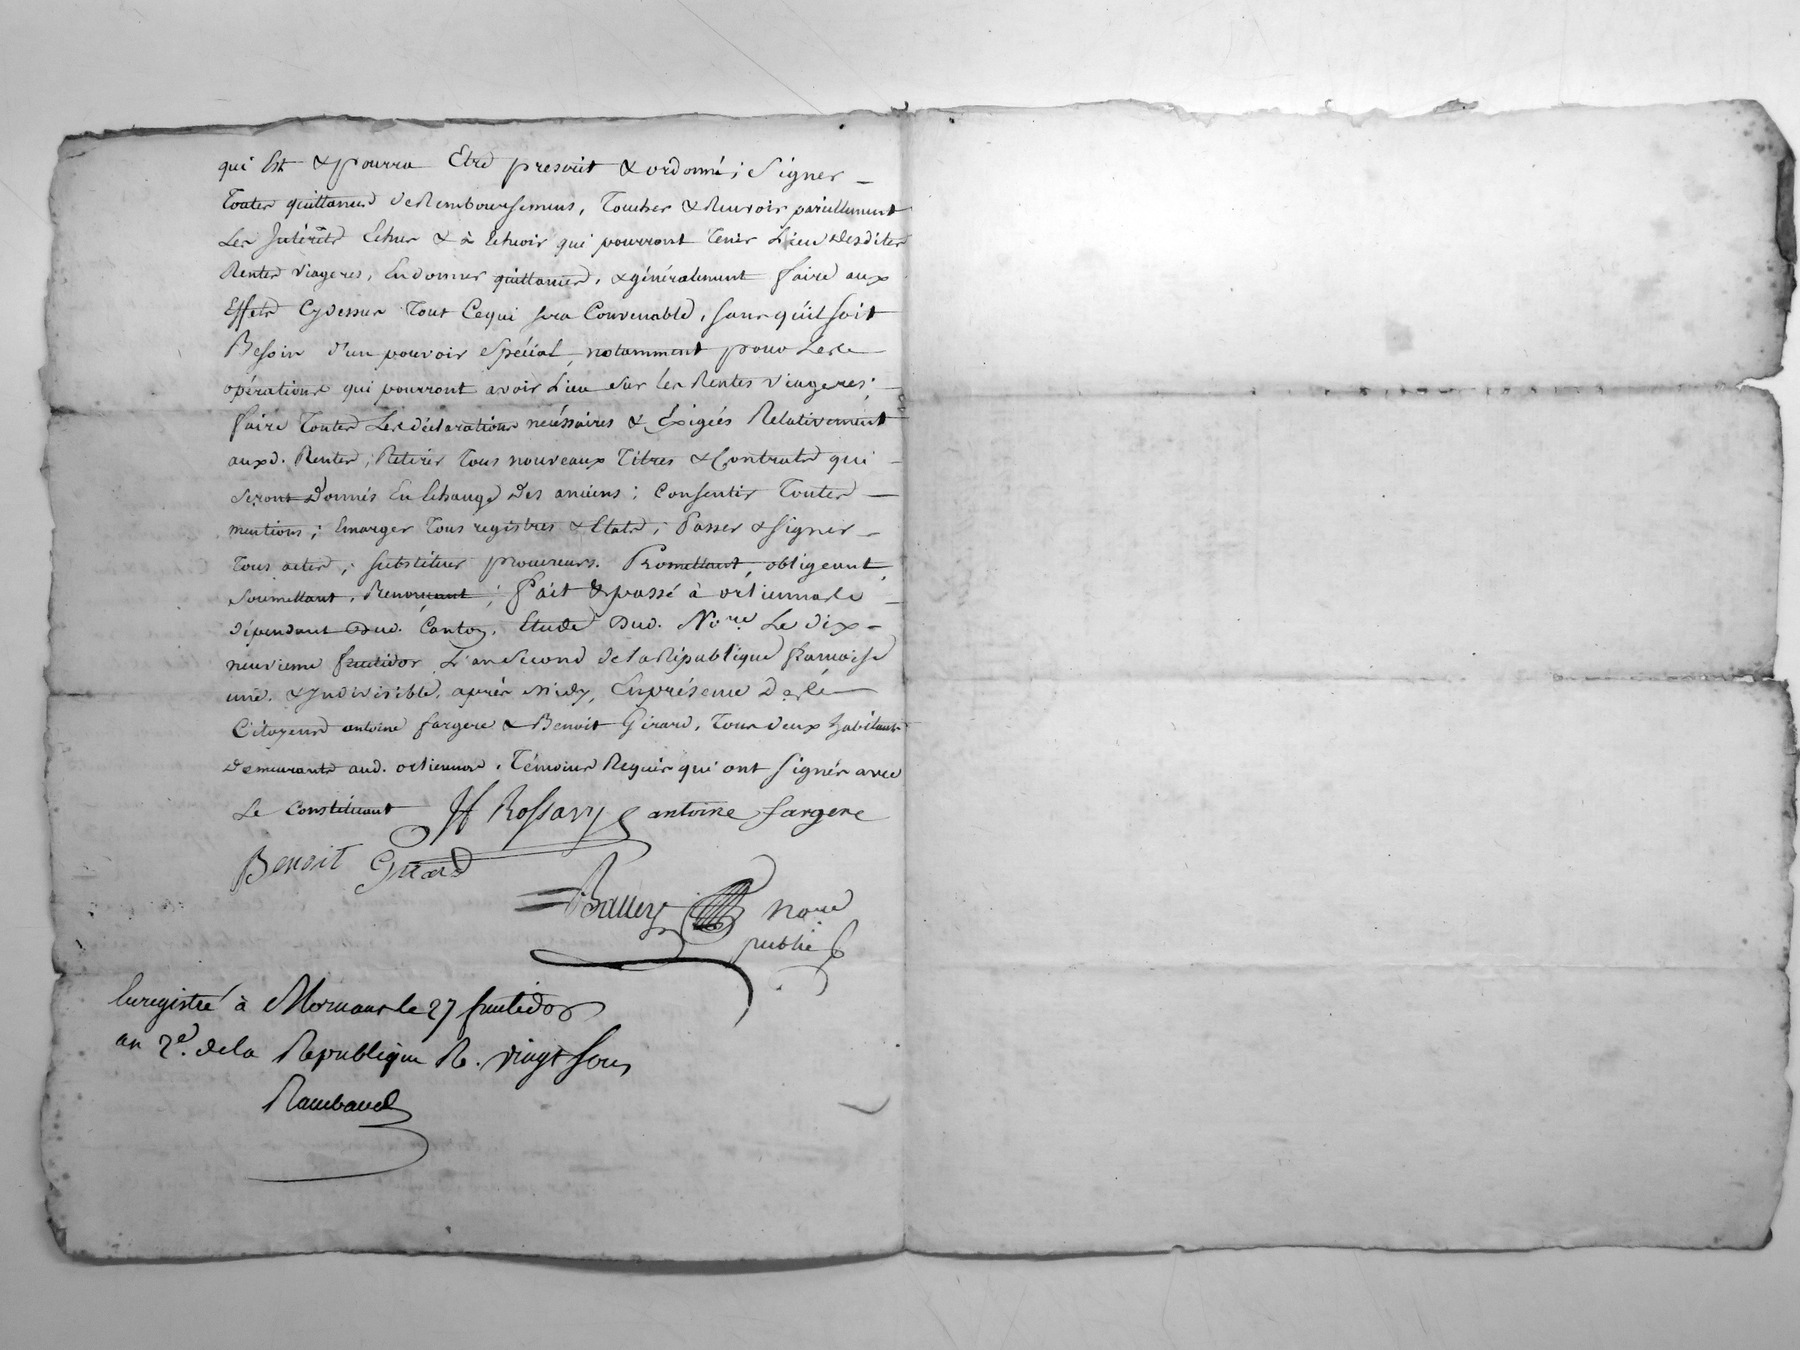 qui Est & pourra Etre prescrit & ordonné; Signer
Toutes quittances de Remboursemens, Toucher & Recevoir pareillement
Les Intérêts Echus & à Echeoir qui pourront Tenir Lieu desdites
Rentes viageres, En donner quittances, & généralement faire aux
Effets Cydessus Tout Cequi sera Convenable, sans qu'il soit
Besoin d'un pouvoir Spécial, notamment pour Les
opérations qui pourront avoir Lieu sur les Rentes viageres;
faire Toutes Les déclarations nécéssaires & Exigées Relativement
auxd. Rentes; Retirer Tous nouveaux Titres & Contrats qui
seront Donnés En Echange des anciens; Consentir Toutes
mentions; Emarger Tous registres & Etats; Passer & signer
Tous actes; substituer procureurs. Promettant, obligeant,
soumettant, Renonçant; fait & passé à
dépendant Dud. Canton, Etude Dud. No.re Le dix-
neuvieme fructidor L'an Second de la République francaise
une & Indivisible, après midy, En présence Des
Citoyens antoine fargere & Benoit Girard, Tous deux habitants
Demeurants aud. Témoins Requis qui ont signés avec
Le Constituant JF Rossary antoine fargere
Benoit Girard
Balley no.re
public
Enregistré à Mornant le 27 fructidor
an 2.e de la Republique R. vingt sous
Raimbaud